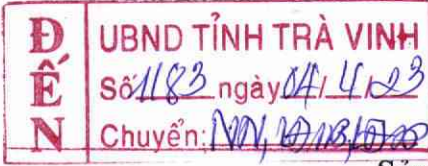 ĐẾN
UBND TỈNH TRÀ VINH
Số 1183 ngày 04/4/23
Chuyển: NN,